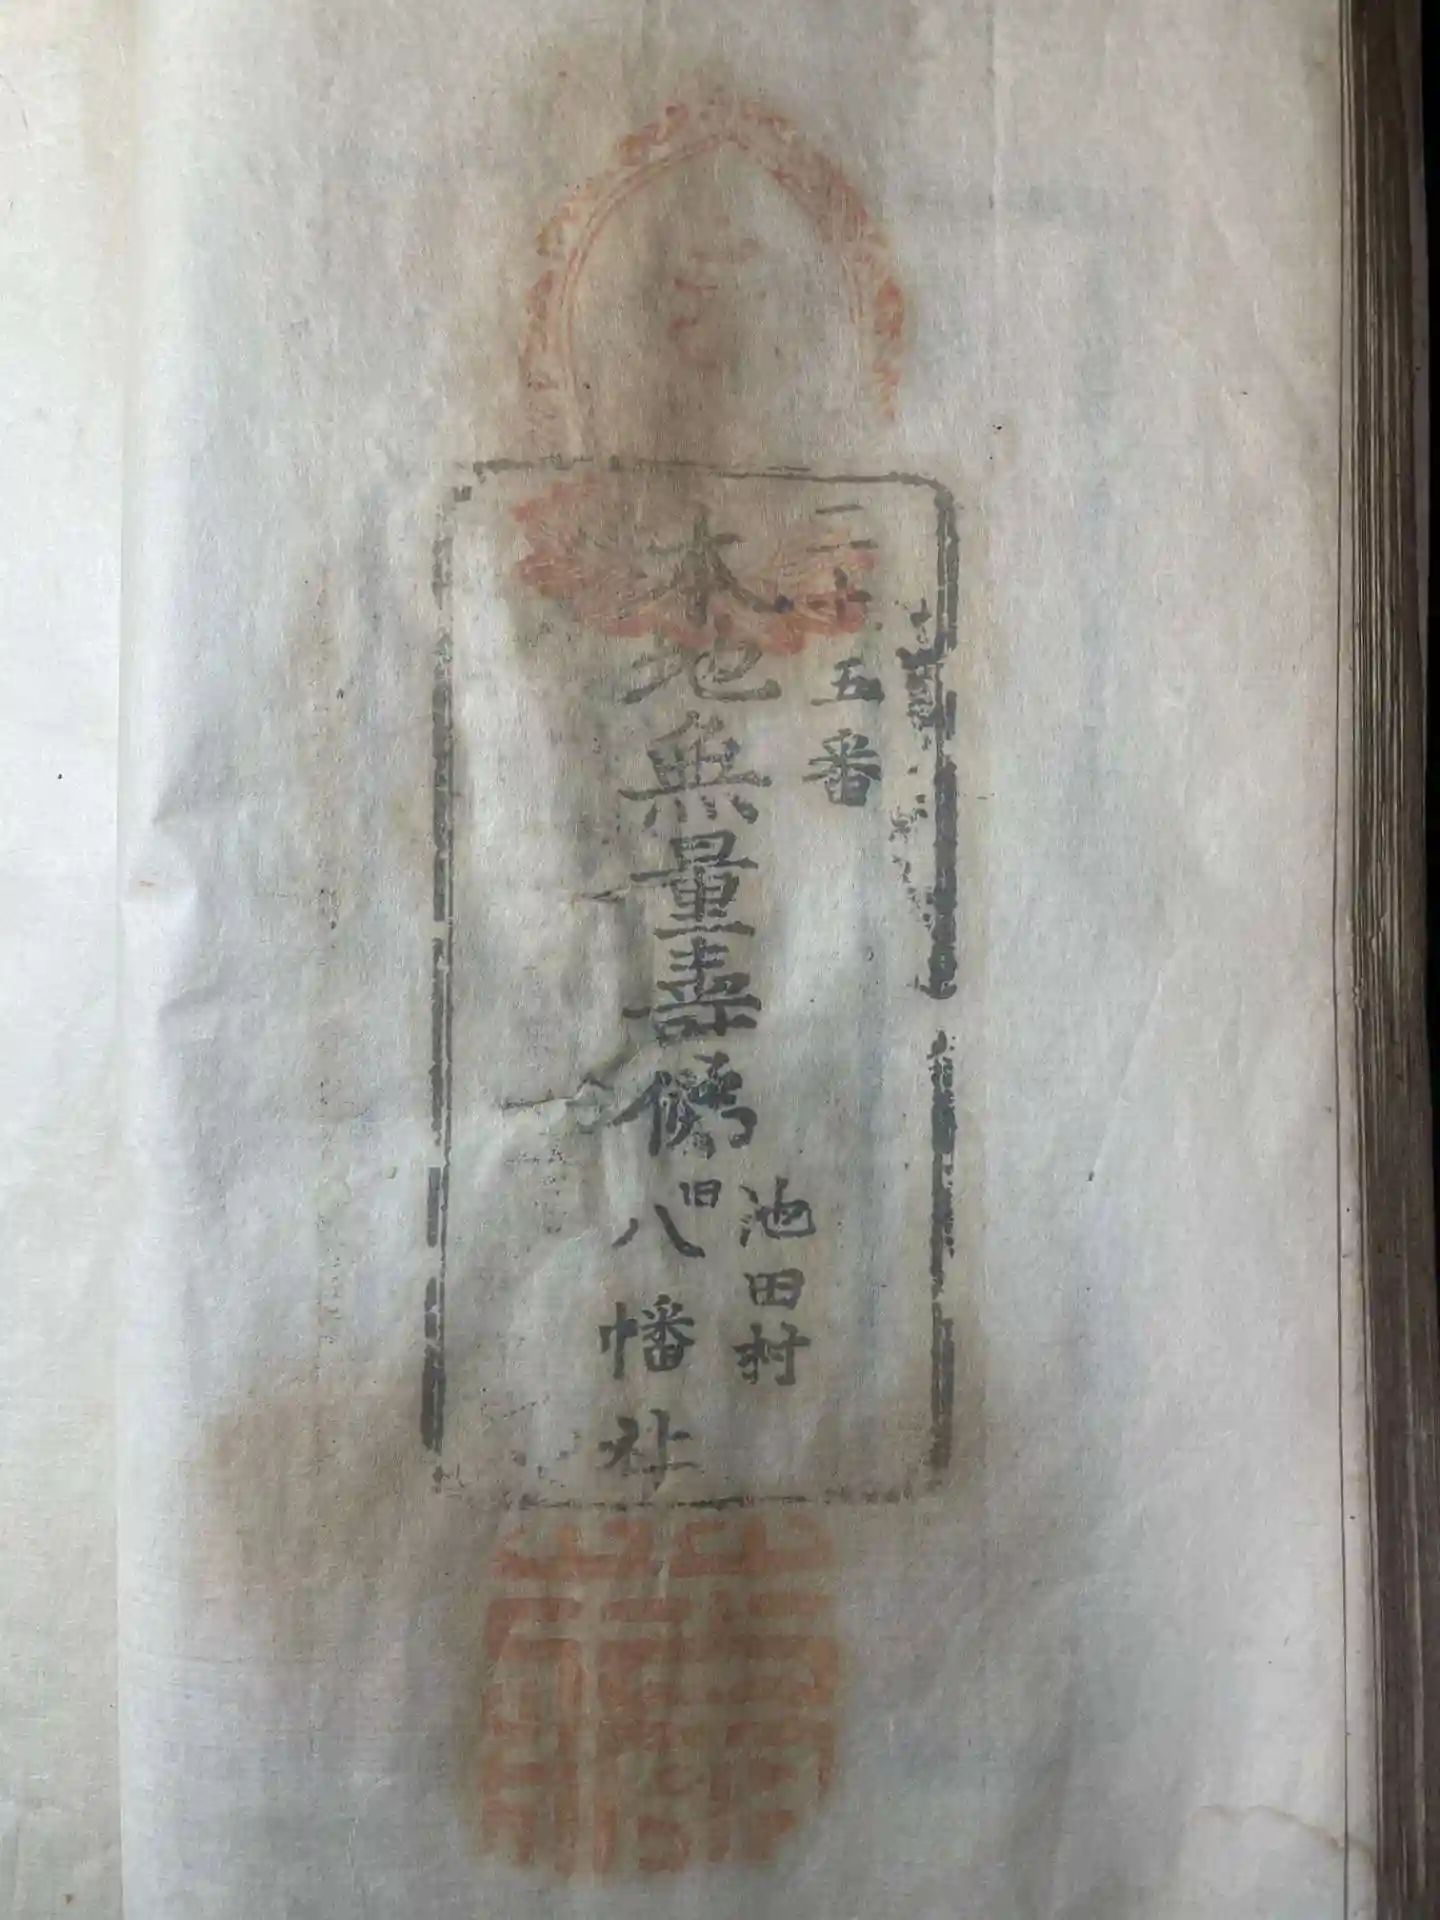 二十五番
本地無量壽佛
池田村
旧八幡社